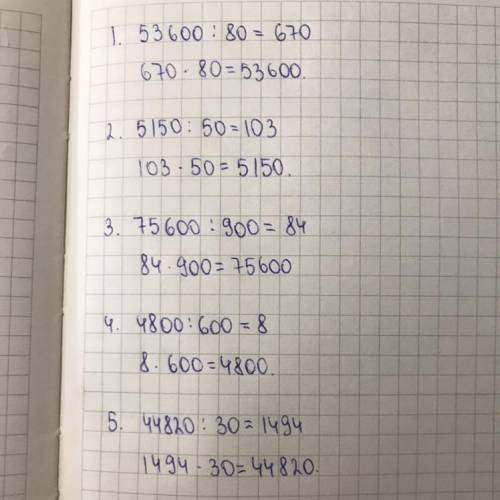 1. 53600 : 80 = 670
670 · 80 = 53600.
2. 5150 : 50 = 103
103 · 50 = 5150.
3. 75600 : 900 = 84
84 · 900 = 75600
4. 4800 : 600 = 8
8 · 600 = 4800.
5. 44820 : 30 = 1494
1494 · 30 = 44820.